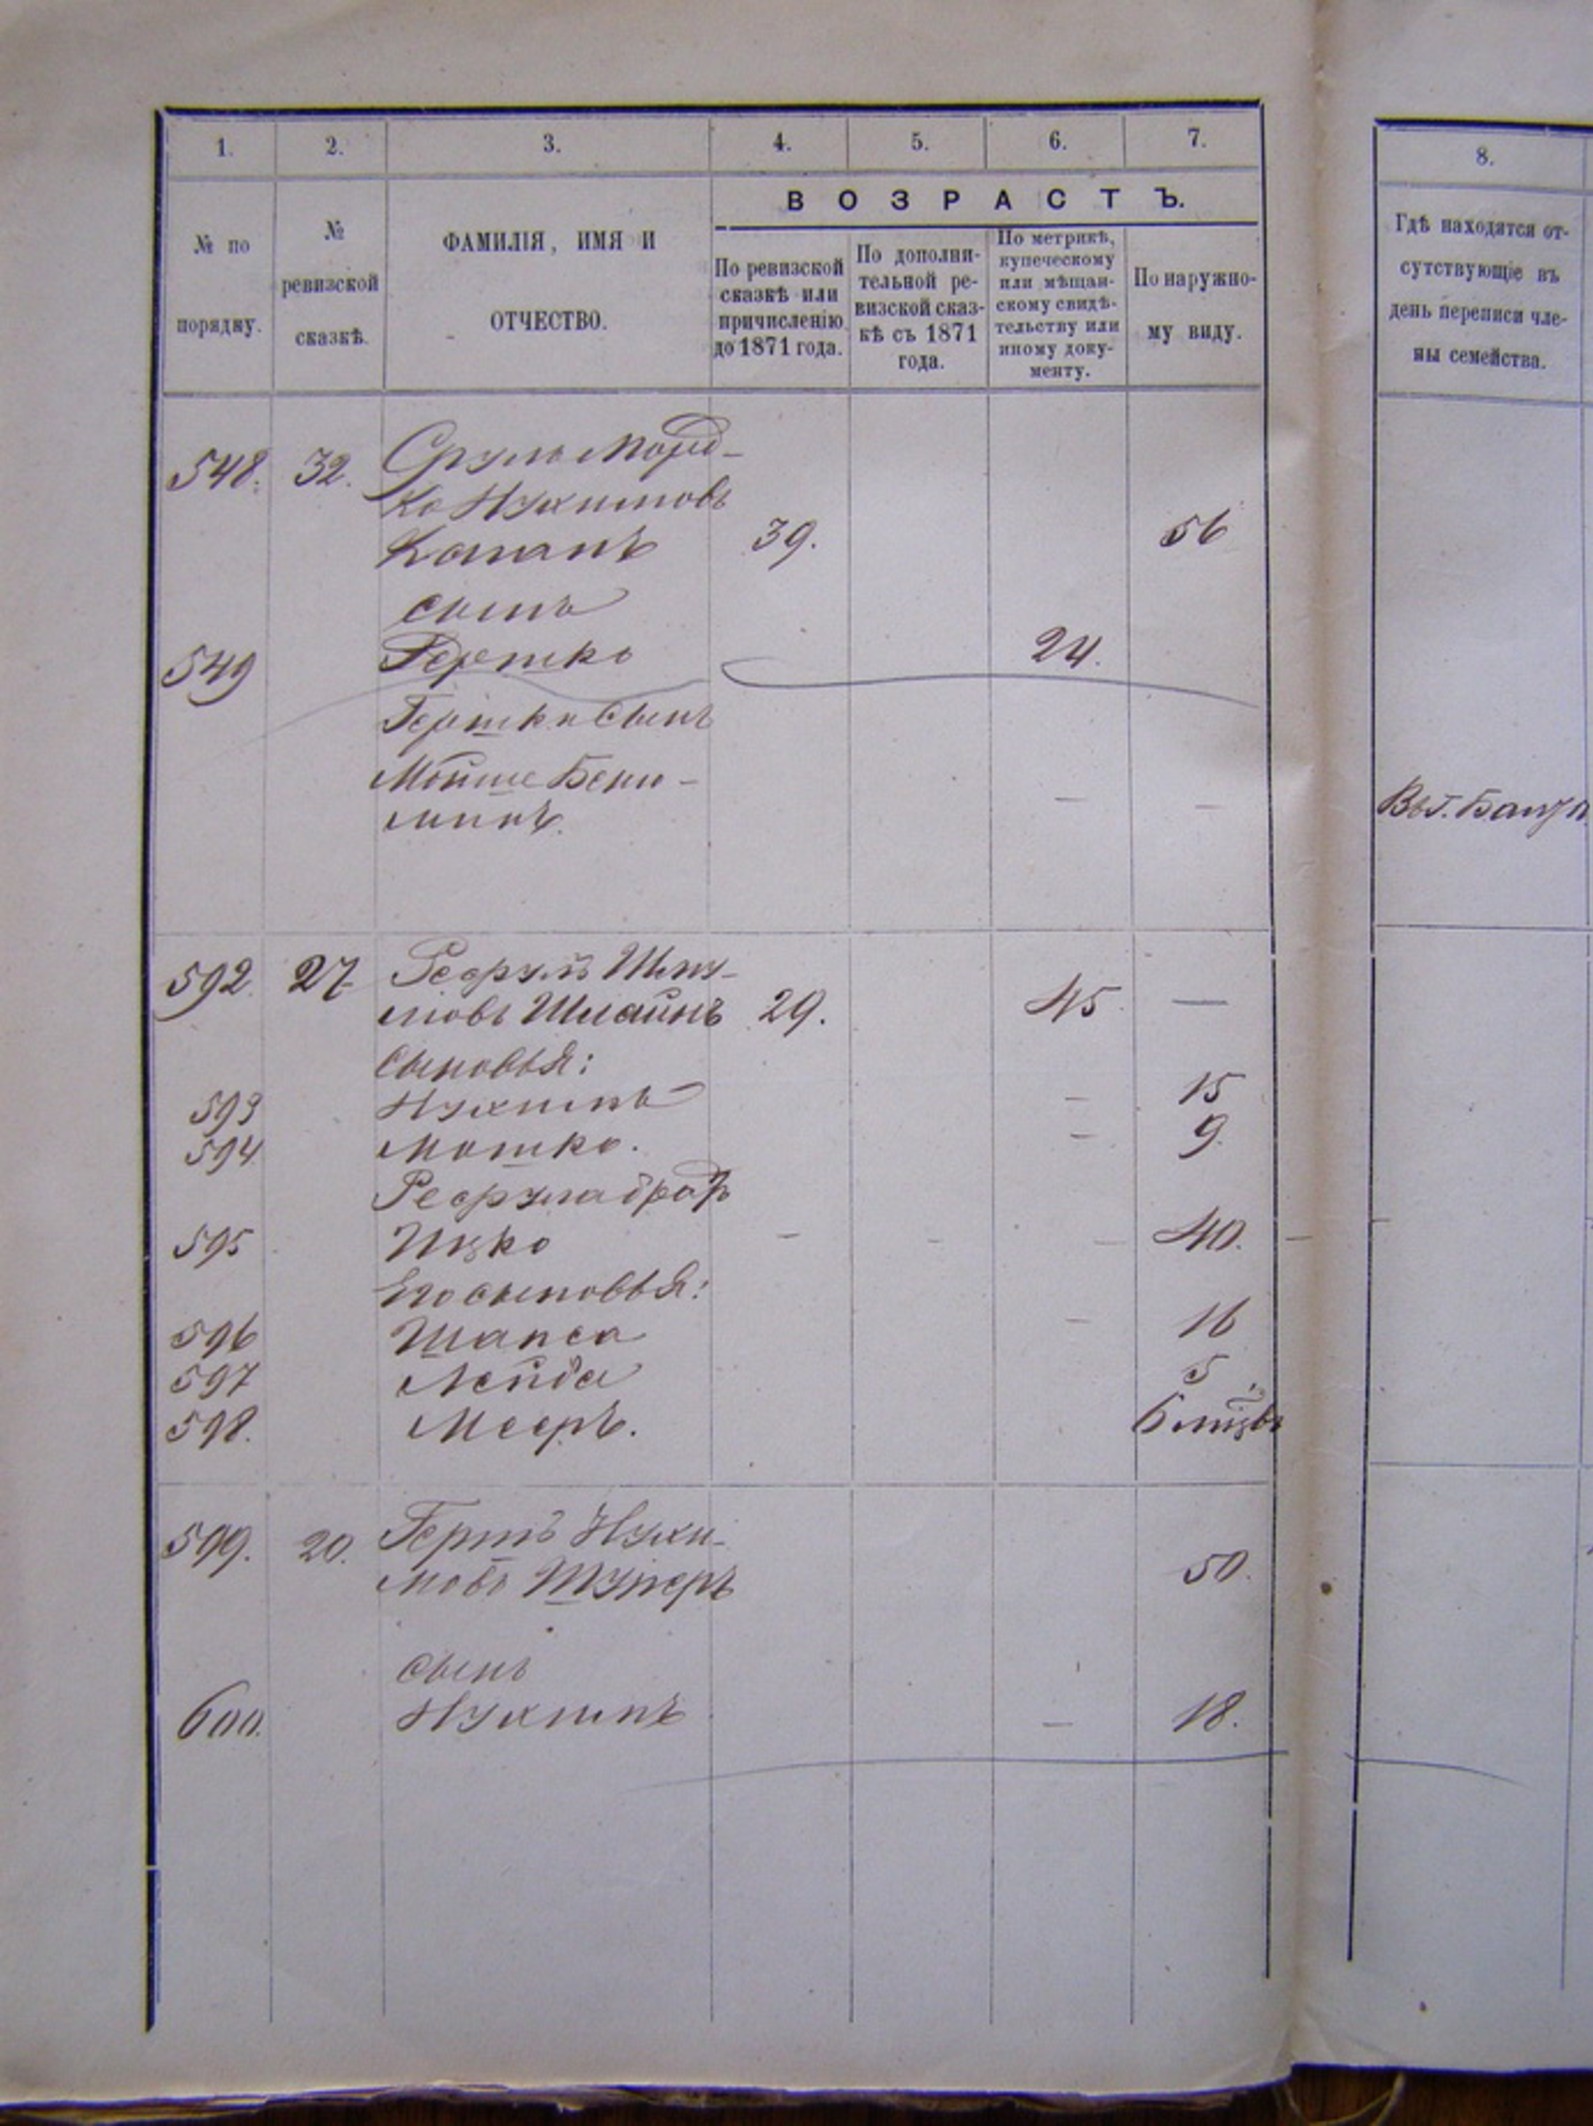 1. 2. 3. 4. 5. 6. 7.
№ по порядку.
№ ревизской сказкѣ.
ФАМИЛІЯ, ИМЯ И
ОТЧЕСТВО.
ВОЗРАСТЪ.
По ревизской
сказкѣ или
причисленію
до 1871 года.
По дополни-
тельной ре-
визской сказ-
кѣ съ 1871
года.
По метрикѣ,
купеческому
или мѣщан-
скому свидѣ-
тельству или
иному доку-
менту.
По наружно-
му виду.
8.
Гдѣ находятся от-
сутствующіе въ
день переписи чле-
ны семейства.
548. 32. Сруль Морд-
ко Нухимовъ
Каганъ 39. 56
сынъ
549 Гершко 24.
Гершки Сынъ
Мойше Беню-
минъ. — —
Въ г.
592. 27 Шму-
ловъ Шлаинъ 29. 45 —
Сыновья:
593 Нухимъ — 15
594. Мошко. — 9.
братъ
595 Ицко — — — 40.
Его сыновья:
596 Шапса — 16
597 Лейба 5
598. Мееръ. 6 мцвъ
599. 20. Гершъ Нухи-
мовъ 50.
сынъ
600. Нухимъ — 18.